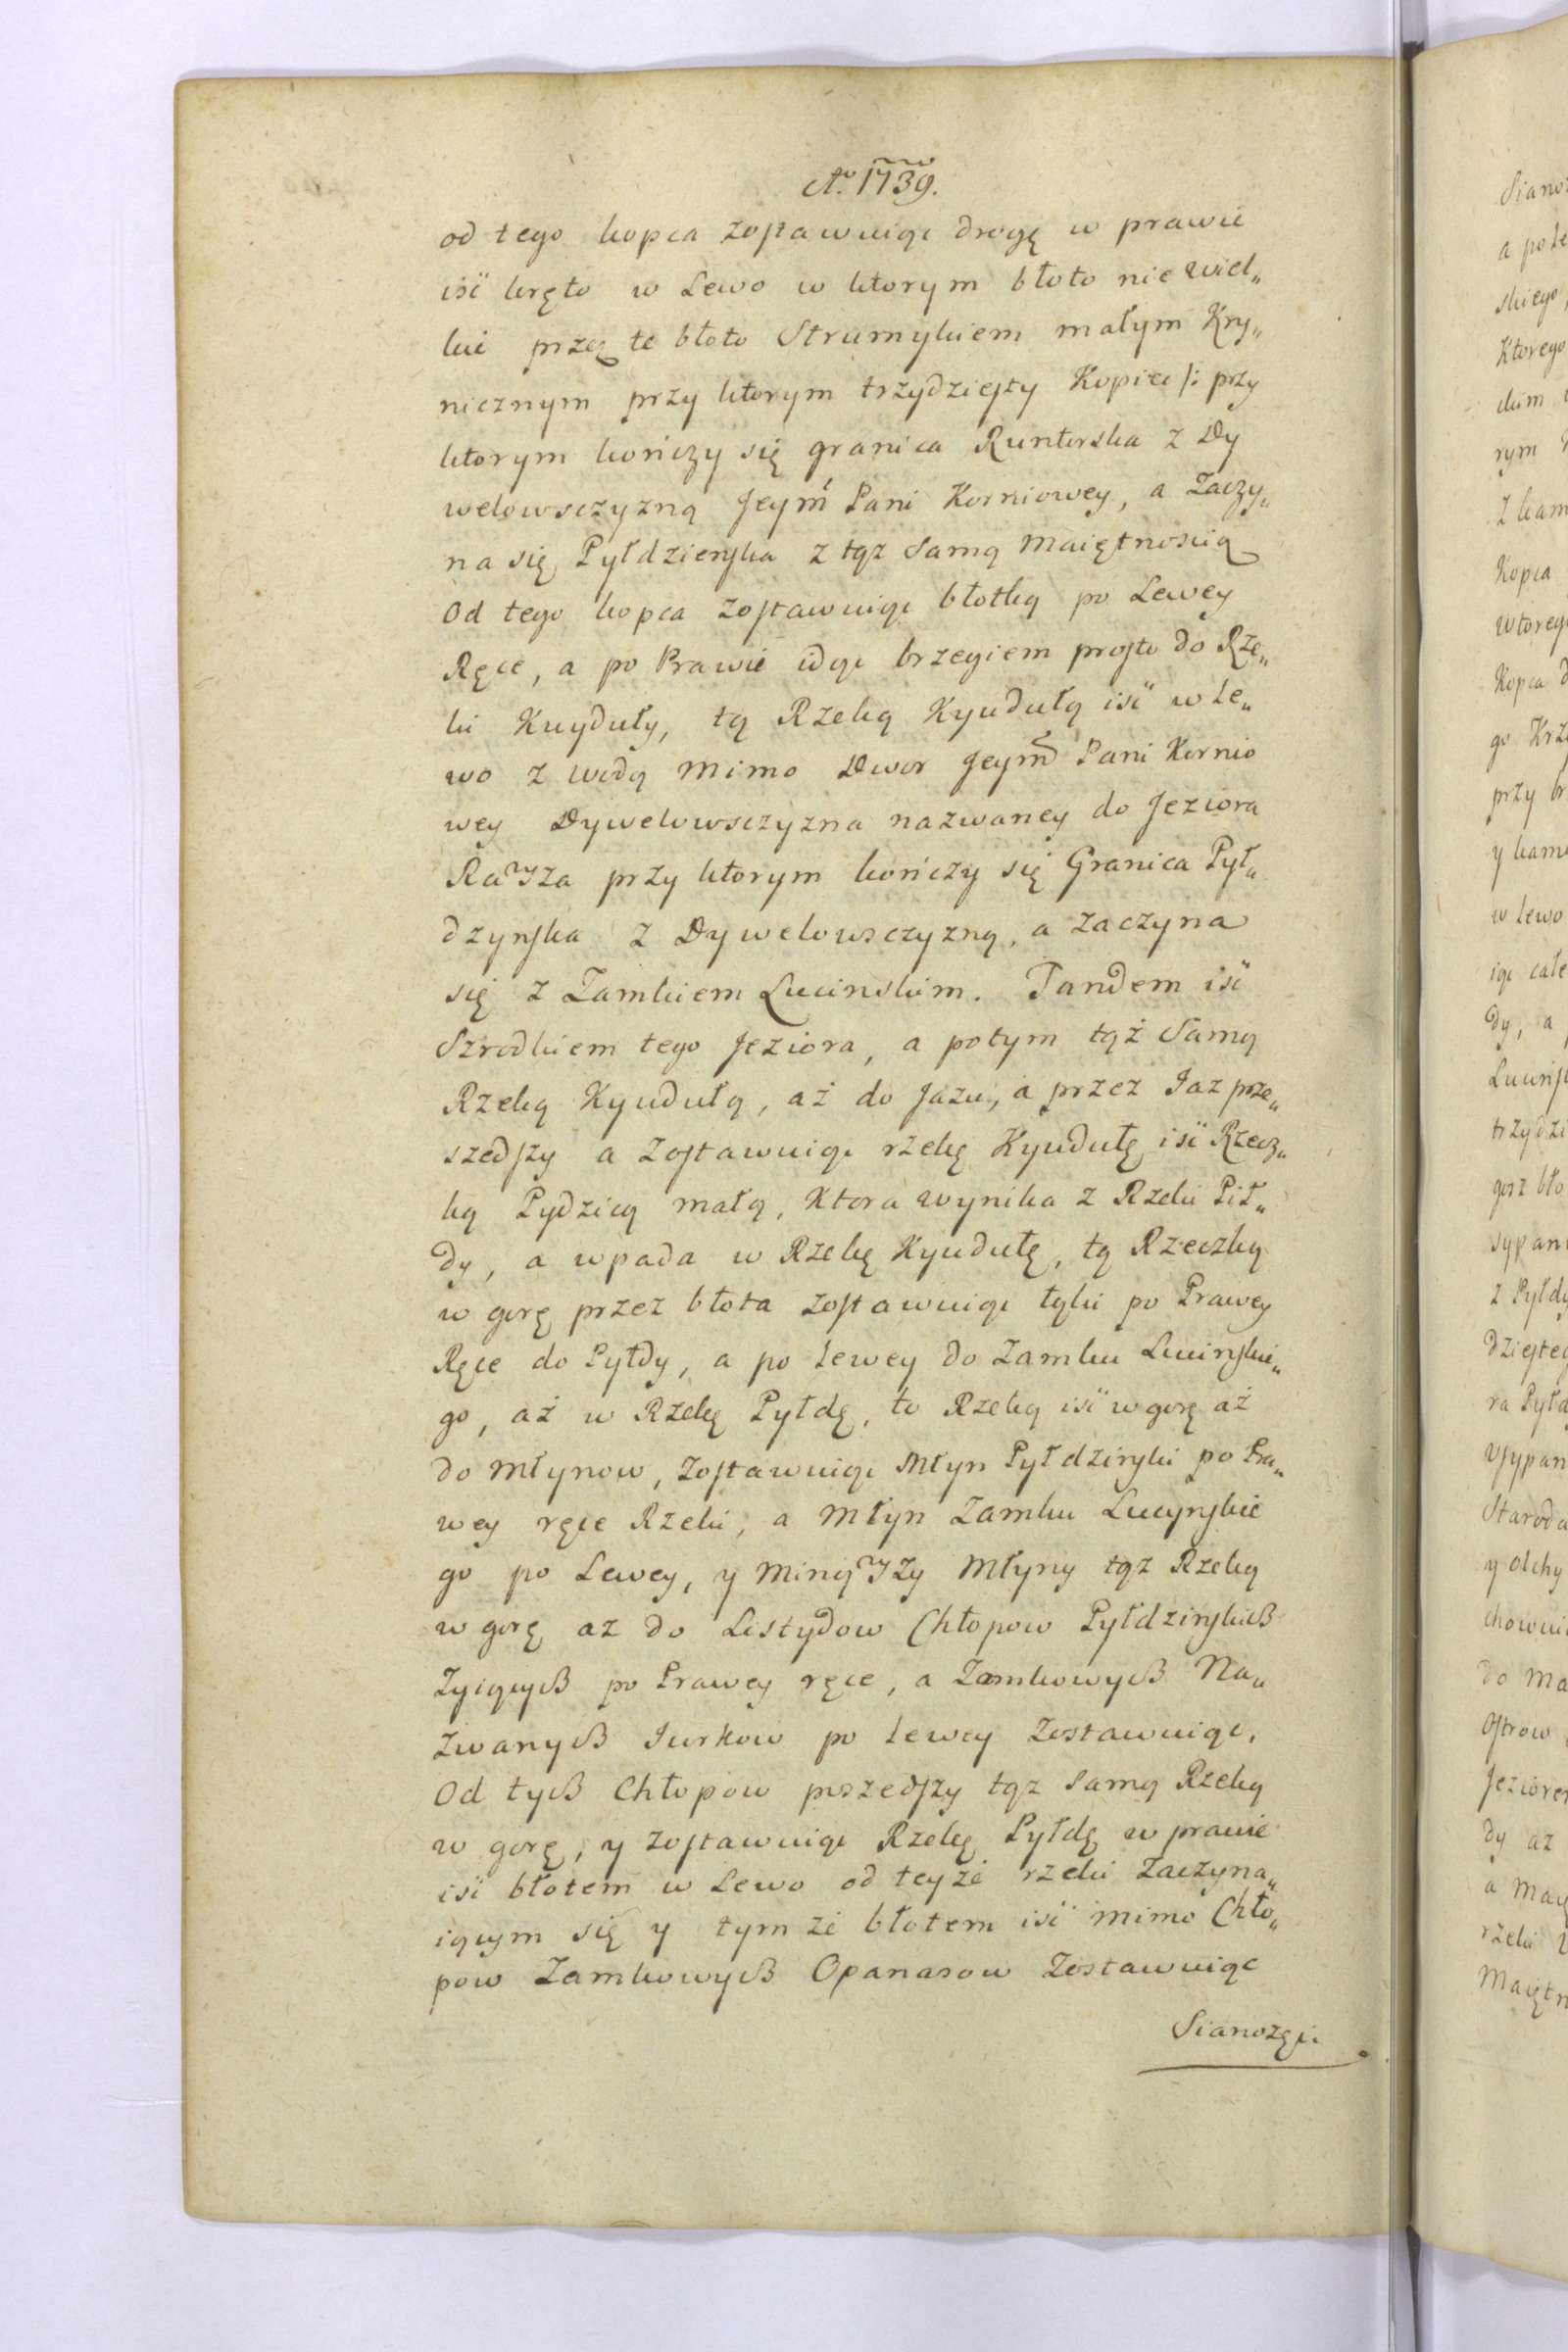 Aᵒ. 1739.
od tego kopca zostawuiąc drogę w prawie
iść kręto w Lewo w ktorym błoto niewiel„
kie przez te błoto Strumykiem małym Kry„
nicznym przy ktorym trzydziesty Kopiec /: przy
ktorym kończy się granica Runtorska z Dy
welowsczyzną Jeym̃ Pani Korniowey, a Zaczy„
na się Pyłdzienska z tąz Samą Maiętnoscią
Od tego kopca zostawuiąc błotką po Lewey
Ręce, a po Prawie idąc brzegiem prosto do Rze„
ki Kuyduły, tą Rzeką Kyudułą iść w le„
wo z wodą Mimo Dwor Jeym̃ Pani Kornio
wey Dywelowsczyzna nazwaney do Jeziora
Rasza przy ktorym kończy się Granica Pył„
dzynska z Dywelowsczyzną, a zaczyna
się z Zamkiem Lucinskim. Tandem iść
Szrodkiem tego Jeziora, a potym tąż Samą
Rzeką Kyudułą, aż do Jazu, a przez Jaz prze„
szedszy a zostawuiąc rzekę Kyudułę iść Rzecz„
ką Pydzicą małą, Ktora wynika z Rzeki Pił„
dy, a wpada w Rzekę Kyudułę, tą Rzeczką
w gorę przez błota zostawuiąc łąki po Prawey
Ręce do Pyłdy, a po Lewey do Zamku Lucinskie„
go, aż w Rzekę Pyłdę, to Rzeką iść w gorę aż
do Młynow, zostawuiąc Młyn Pyłdzinski po Pra„
wey ręce Rzeki, a Młyn Zamku Lucynskie
go po Lewey, y Minąszy Młyny tąz Rzeką
w gorę az do Listydow Chłopow Pyłdzinskich
Zyiących po Prawey ręce, a Zamkowych Na„
zwanych Jurkow po Lewey Zostawuiąc.
Od tych Chłopow poszedszy tąz Samą Rzeką
w gorę, y zostawuiąc Rzekę Pyłdę w prawie
iść błotem w Lewo od teyże rzeki Zaczyna„
iącym się y tym że błotem iść mimo Chło„
pow Zamkowych Opanasow Zostawuiąc
Sianozęci